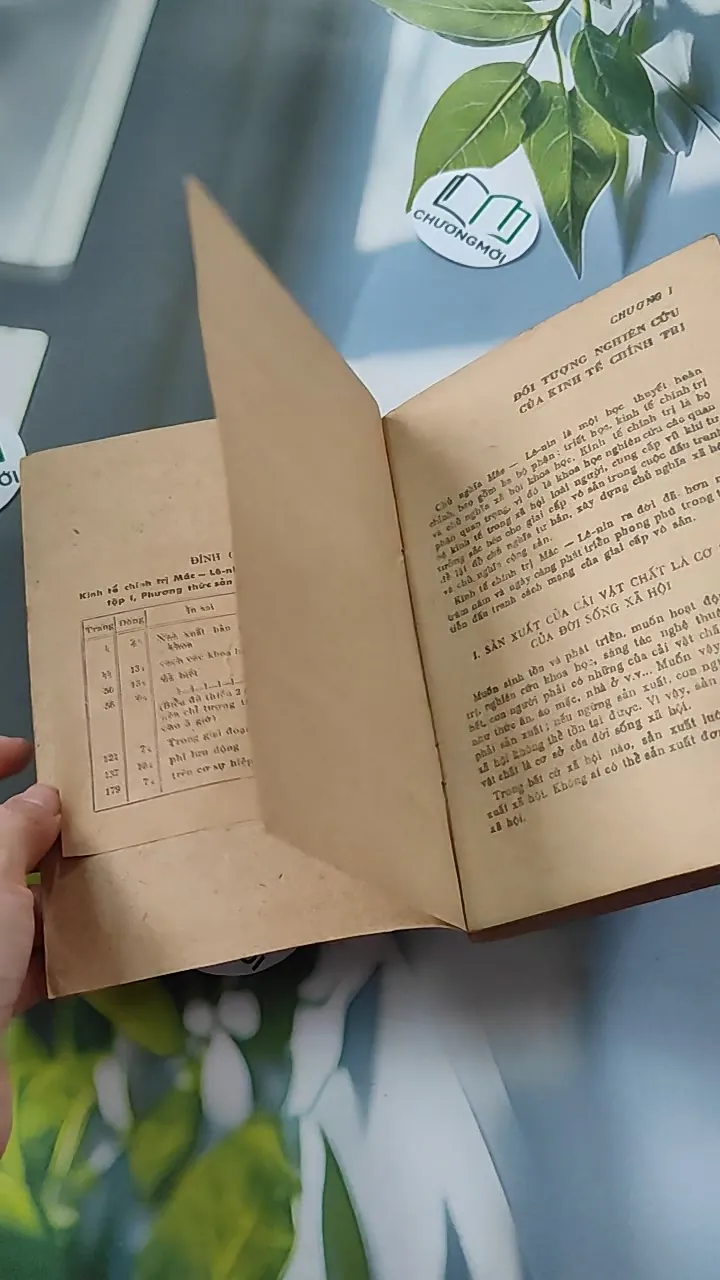 CHƯƠNGMỚI
ĐÍNH C
Kinh tế chính trị Mác — Lê-ni
tập I, Phương thức sản
Trang Dòng In sai
Nhà xuất bản
khoa
sách các khoa h
đã biết
(Biểu đồ thiếu 2
nên chỉ tượng t
sao 3 giờ)
122 7 Trong giai đoạn
137 phí lưu động
179 7 trên cơ sự hiệp
CHƯƠNG I
ĐỐI TƯỢNG NGHIÊN CỨU
CỦA KINH TẾ CHÍNH TRỊ
Chủ nghĩa Mác — Lê-nin là một học thuyết hoàn
chỉnh bao gồm ba bộ phận: triết học, kinh tế chính trị
và chủ nghĩa xã hội khoa học. Kinh tế chính trị là bộ
phận quan trọng, vì đó là khoa học nghiên cứu các quan
hệ kinh tế trong xã hội loài người, cung cấp vũ khí tư
tưởng sắc bén cho giai cấp vô sản trong cuộc đấu tranh
để lật đổ chủ nghĩa tư bản, xây dựng chủ nghĩa xã hộ
và chủ nghĩa cộng sản.
Kinh tế chính trị Mác — Lê-nin ra đời đã hơn m
trăm năm và ngày càng phát triển phong phú trong
tiễn đấu tranh cách mạng của giai cấp vô sản.
I. SẢN XUẤT CỦA CẢI VẬT CHẤT LÀ CƠ
CỦA ĐỜI SỐNG XÃ HỘI
Muốn sinh tồn và phát triển, muốn hoạt độn
trị, nghiên cứu khoa học, sáng tác nghệ thu
hết, con người phải có những của cải vật chấ
như thức ăn, áo mặc, nhà ở v.v... Muốn vậy
phải sản xuất; nếu ngừng sản xuất, con ngư
xã hội không thể tồn tại được. Vì vậy, sản
vật chất là cơ sở của đời sống xã hội.
Trong bất cứ xã hội nào, sản xuất luô
xuất xã hội. Không ai có thể sản xuất đơn
xã hội.